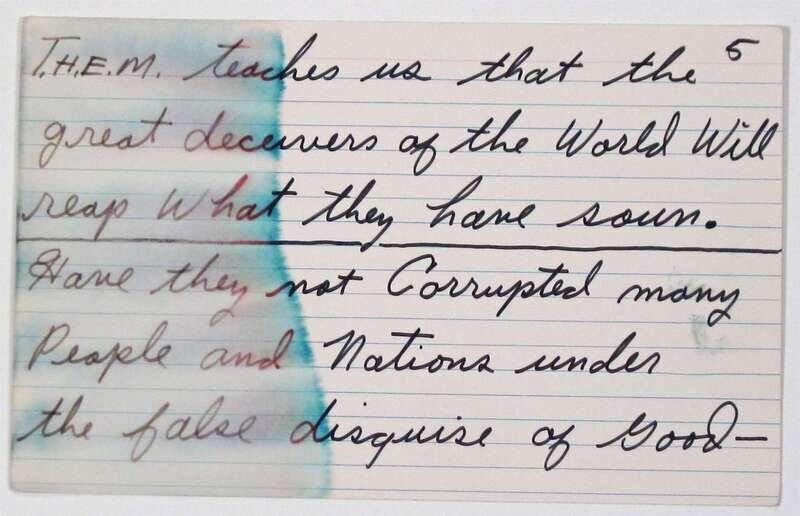 T.H.E.M. teaches us that the 5
great deceivers of the World Will
reap What they have sown.
Have they not Corrupted many
People and Nations under
the false disguise of Good—